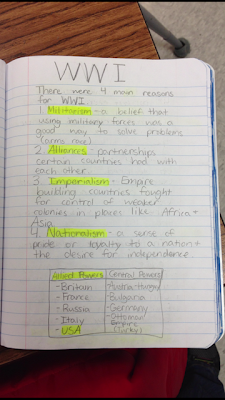 WWI
There were 4 main reasons
for WWI...
1. Militarism - a belief that
using military forces was a
good way to solve problems
(arms race)
2. Alliances - partnerships
certain countries had with
each other.
3. Imperialism - Empire
building countries fought
for control of weaker
colonies in places like Africa +
Asia
4. Nationalism - a sense of
pride or loyalty to a nation +
the desire for independence.
Allied Powers Central Powers
- Britain - Austria-Hungary
- France - Bulgaria
- Russia - Germany
- Italy - Ottoman
- USA Empire
(Turkey)